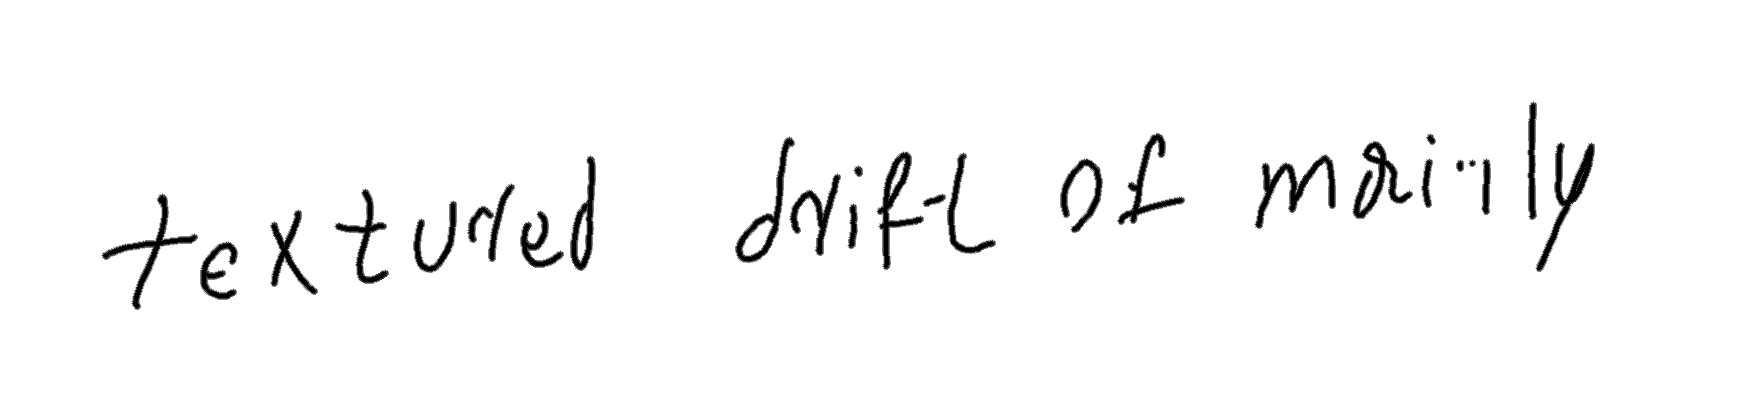 textured drift of mainly